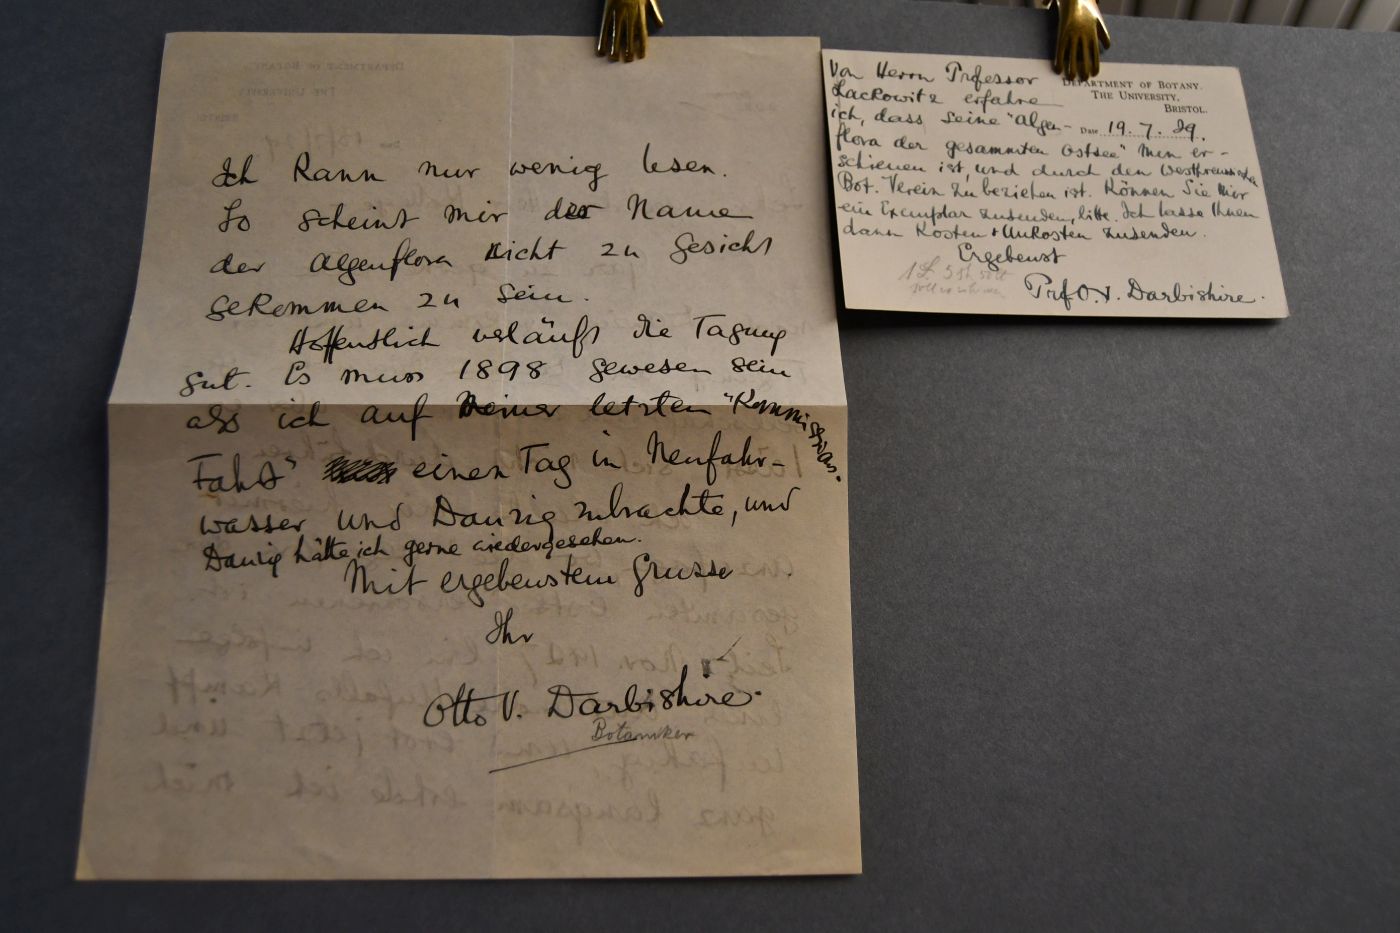 Ich kann nur wenig lesen.
So scheint mir der Name
der Algenflora nicht zu Gesicht
gekommen zu sein.
Hoffentlich verläuft die Tagung
gut. Es muss 1898 gewesen sein
als ich auf meiner letzten "Kommissions-
Fahrt" einen Tag in Neufahr-
wasser und Danzig zubrachte, und
Danzig hätte ich gerne wiedergesehen.
Mit ergebenstem Grusse
Ihr
Otto V. Darbishire.
Botaniker
DEPARTMENT OF BOTANY.
THE UNIVERSITY,
BRISTOL.
Date 19. 7. 29.
Von Herrn Professor
Lackowitz erfahre
ich, dass seine "Algen-
flora der gesammten Ostsee" nun er-
schienen ist, und durch den Westpreussischen
Bot. Verein zu beziehen ist. Können Sie mir
ein Exemplar zusenden, bitte. Ich lasse Ihnen
dann Kosten + Unkosten zusenden.
Ergebenst
Prof O. V. Darbishire.